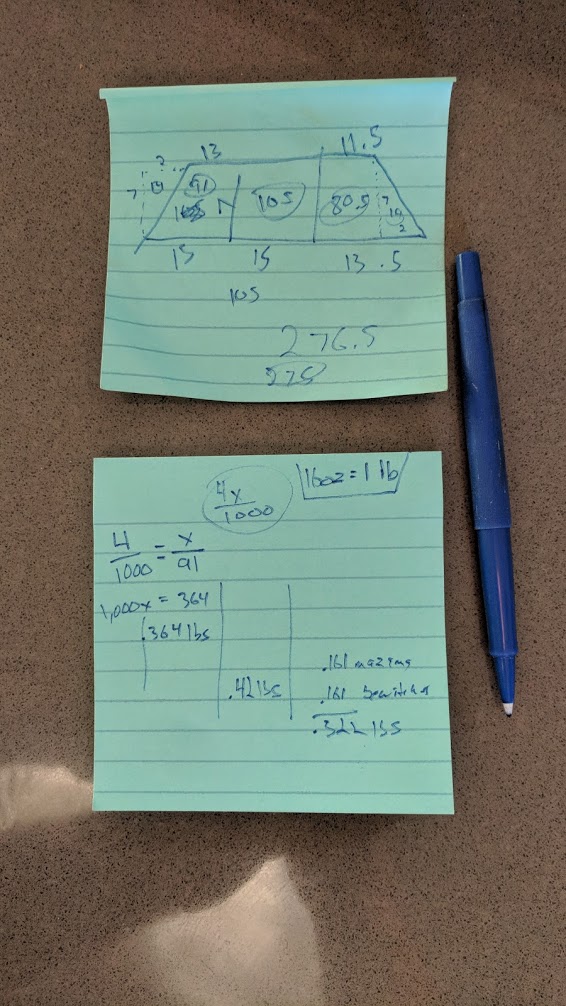 13 11.5
?
7 14 91 7 105 80.5 7 14
2
15 15 13.5
105
276.5
275
4x/1000 16oz = 1 lb
4/1000 = x/91
1,000x = 364
.364 lbs
.161 mazama
.42 lbs .161 bewitched
.322 lbs